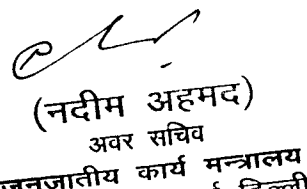 (नदीम अहमद)
अवर सचिव
जनजातीय कार्य मन्त्रालय
दिल्ली